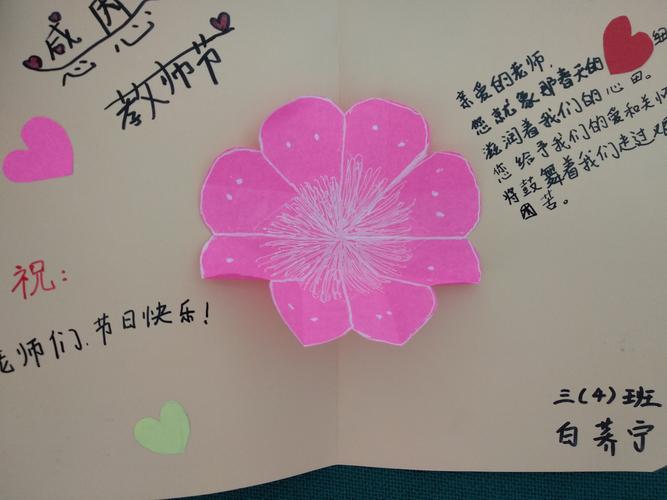 感恩
教师节
祝:
老师们、节日快乐!
亲爱的老师,
您就象那春天的细
滋润着我们的心田。
您给予我们的爱和关怀
将鼓舞着我们走过
困苦。
三(4)班
白荞宁